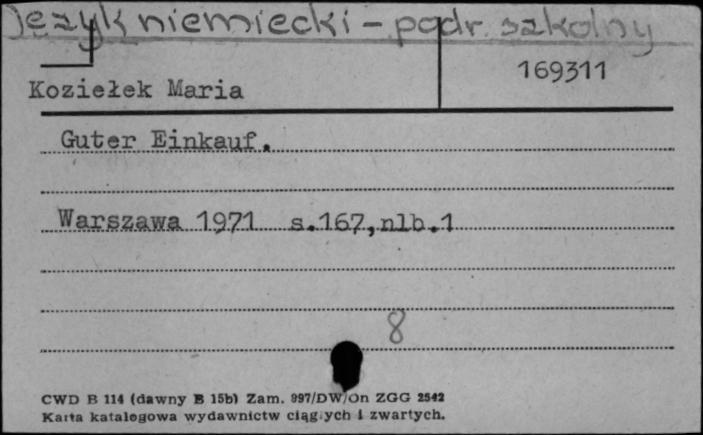 język niemiecki - podr. szkolny
169311
Koziełek Maria
Guter Einkauf.
Warszawa 1971 s.167,nlb.1
8
CWD B 114 (dawny B 15b) Zam. 997/DW/On ZGG 2542
Karta katalogowa wydawnictw ciągłych i zwartych.